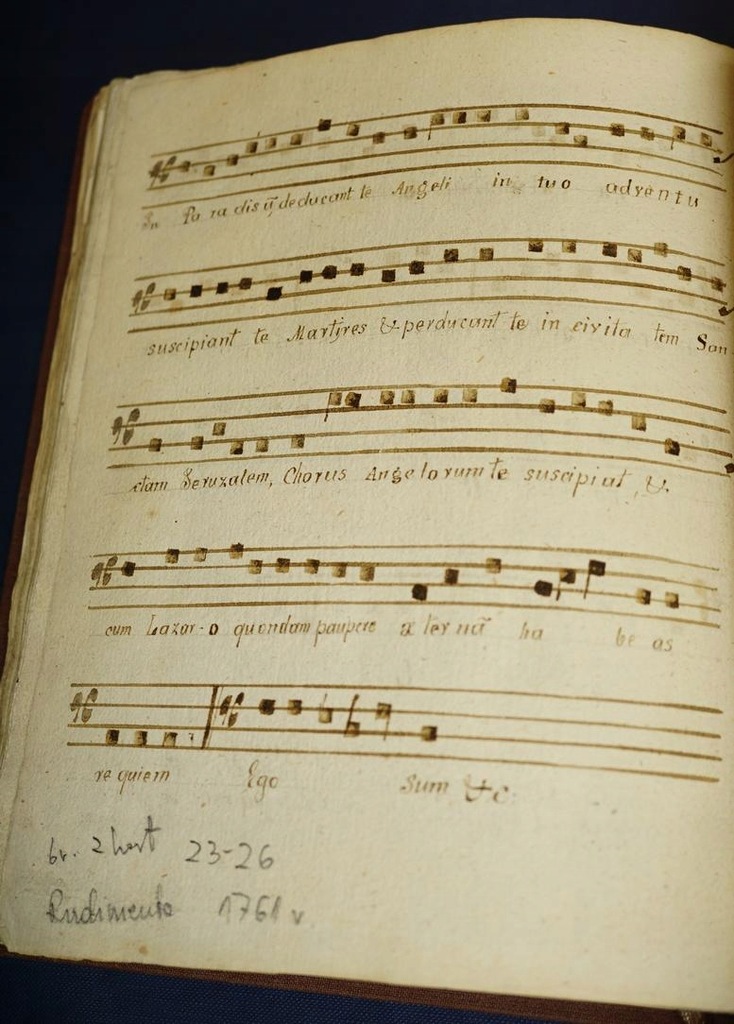 In Pa ra dis ũ deducant te Angeli in tuo adventu
suscipiant te Martÿres & perducant te in civita tem San
ctam Jeruzalem, Chorus Angelorum te suscipiat, &
cum Lazar-o quondam paupere æ ter nã ha be as
requiem Ego Sum &c.
23-26
Rudimenta 1761